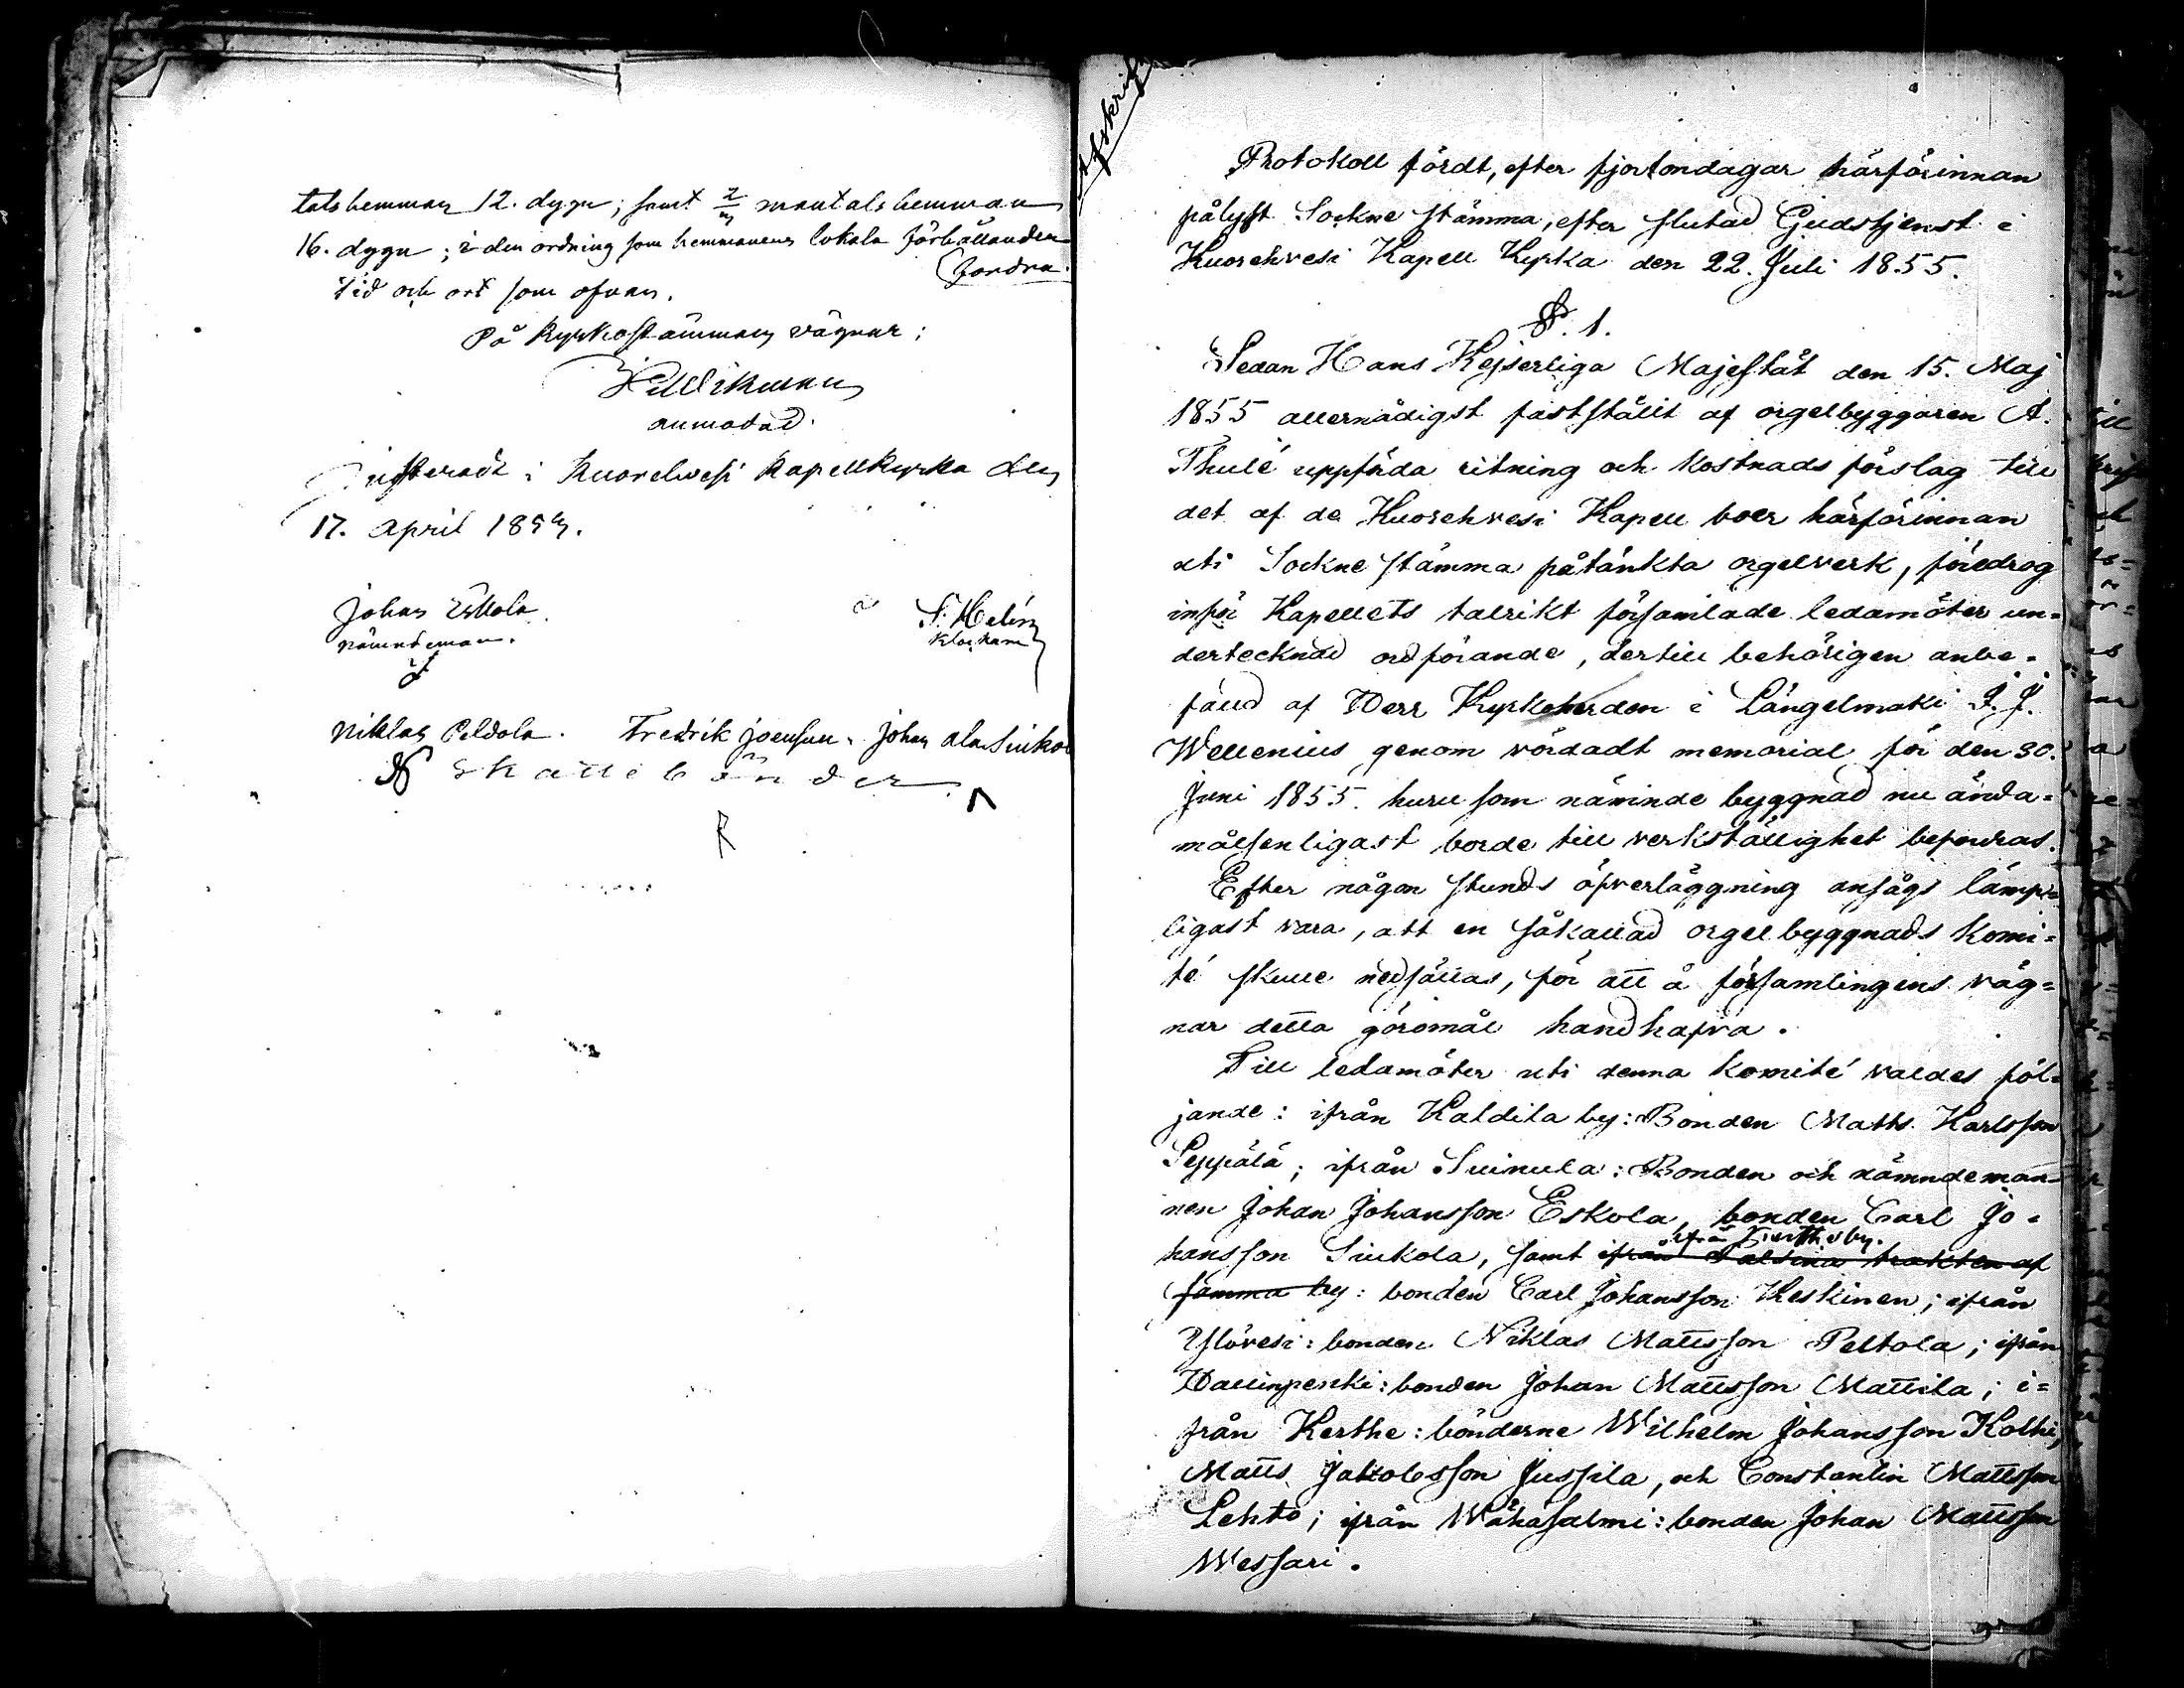 talshemman 12. dygn; samt 2/3 mantals hemman
16. dygn; i den ordning som hemmanens lokala förhållanden
fordra.
Tid och ort som ofvan.
På Kyrkostämmans vägnar:
Wikman
anmodad.
Justeradt i Kuorehvesi Kapellkyrka den
17. april 185
Johan Eskola
nämndeman.
S. Helin
Klockare
Niklas Peldola. Fredrik Joensuu. Johan ala Siukola
Skattebönder
R
Afskrift
Protokoll fördt, efter fjortondagar härförinnan
pålyst Sockne stämma, efter slutad Gudstjenst i
Kuorehvesi Kapell Kyrka den 22. Juli 1855.
§. 1.
Sedan Hans Kejserliga Majestät den 15. Maj
1855 allernådigst fastställt af orgelbyggaren A.
Thulé uppförda ritning och kostnads förslag till
det af de Kuorehvesi Kapell boer härförinnan
uti Sockne stämma påtänkta orgelverk, föredrog
inför Kapellets talrikt församlade ledamöter un=
dertecknad ordförande, dertill behörigen anbe=
falld af Herr Kyrkoherden i Längelmäki J. J.
Wellenius genom vördadt memorial för den 30.
Juni 1855. huru som nämnde byggnad nu ända=
målsenligast borde till verkställighet befordras.
Efter någon stunds öfverläggning ansågs lämp=
ligast vara, att en såkallad orgelbyggnads komi=
té skulle nedsättas, för att å församlingens väg=
nar detta göromål handhafva.
Till ledamöter uti denna komité valdes föl=
jande: ifrån Kaldila by: Bonden Matts Karlsson
Seppälä; ifrån Suinula: Bonden och nämndeman=
nen Johan Johansson Eskola, bonden Carl Jo=
ifrån by.
hansson Siukola, samt ifrån trakten af
samma by: bonden Carl Johansson Keskinen; ifrån
Ylövesi: bonden Niklas Mattsson Peltola; ifrån
Hallinpenki: bonden Johan Mattsson Mattila; i=
från Kerthe: bönderne Wilhelm Johansson Kolhi,
Matts Jakobsson Jussila, och Constantin Mattsson
Lehto; ifrån Wähäsalmi: bonden Johan Mattsson
Wessari.